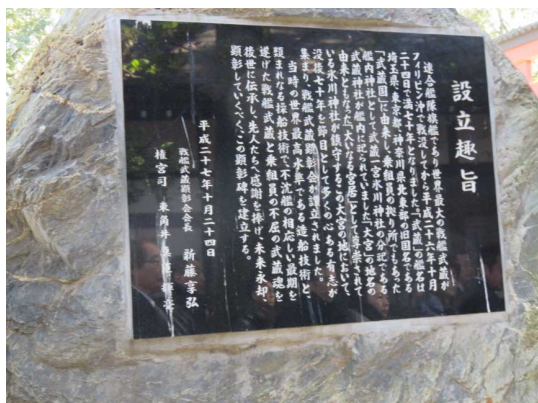 設立趣旨
連合艦隊旗艦であり世界最大の戦艦武蔵が
フィリピン沖で戦没してから平成二十六年十月
二十四日で満七十年となりました。「武蔵」の艦名は
埼玉県、東京都、神奈川県北東部の旧国名である
「武蔵国」に由来し、乗組員の拠り所であった
艦内神社として武蔵一宮氷川神社の分祀である
武蔵神社が艦内に祀られていました。「大宮」の地名の
由来ともなった「大いなる宮居」として尊崇されて
いる氷川神社が鎮守するこの大宮の地において、
没後七十年を節目として多くの心ある有志が
集まり、戦艦武蔵顕彰会が設立されました。
当時の世界最高水準である造船技術と、
類まれなる操船技術で、不沈艦の相応しい最期を
遂げた戦艦武蔵と乗組員の不屈の武蔵魂を
後世に伝承し、先人たちへ感謝を捧げ、未来永劫
顕彰していくべく、この顕彰碑を建立する。
平成二十七年十月二十四日
戦艦武蔵顕彰会会長 新藤享弘
権宮司 東角井